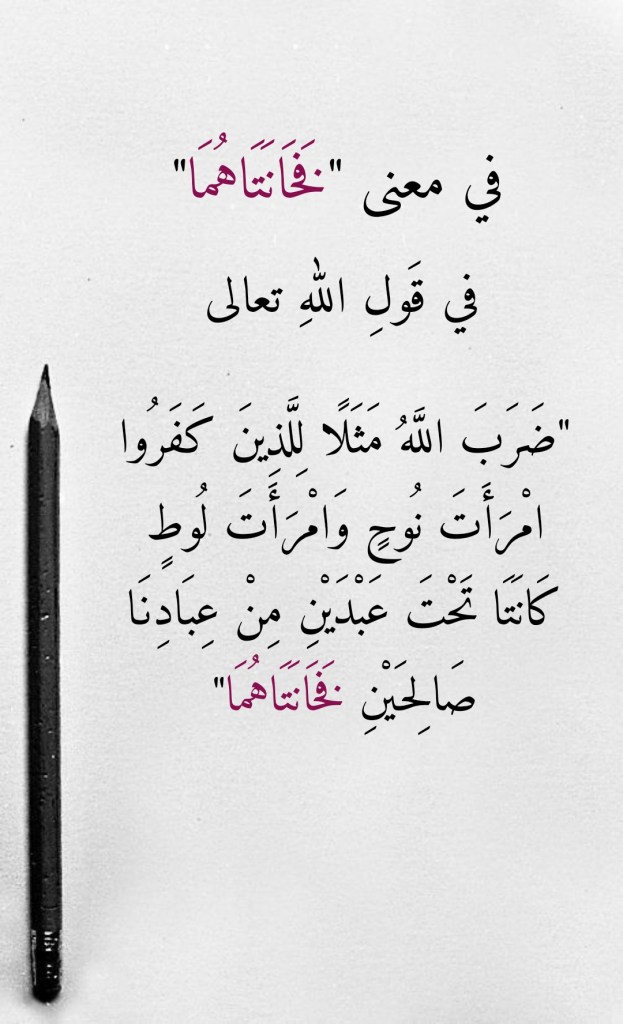 في معنى "فَخَانَتَاهُمَا"
في قَولِ اللهِ تعالى
"ضَرَبَ اللَّهُ مَثَلًا لِلَّذِينَ كَفَرُوا
امْرَأَتَ نُوحٍ وَامْرَأَتَ لُوطٍ
كَانَتَا تَحْتَ عَبْدَيْنِ مِنْ عِبَادِنَا
صَالِحَيْنِ فَخَانَتَاهُمَا"